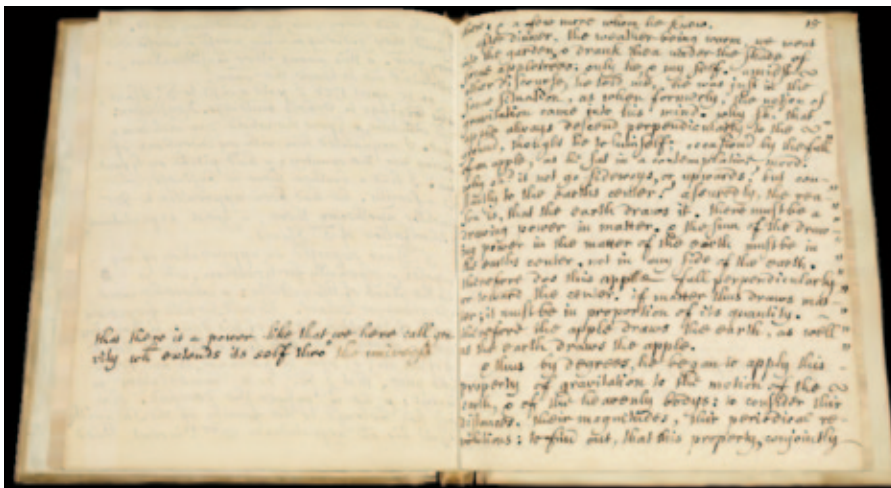 that there is a power like that we here call gra-
vity wch extends its self thro' the universe
15
here, & a few more whom he knew.
after dinner, the weather being warm, we went
into the garden, & drank thea under the shade of
some appletrees; only he, & my self. amidst
other discourse, he told me, he was just in the
same situation, as when formerly, the notion of
gravitation came into his mind. why sh. that
apple always descend perpendicularly to the
ground, thought he to himself; occasion'd by the fall
of an apple, as he sat in a contemplative mood.
why sh. it not go sideways, or upwards? but con-
stantly to the earths center? assuredly, the rea-
son is, that the earth draws it. there must be a
drawing power in matter. & the sum of the draw-
ing power in the matter of the earth must be in
the earths center, not in any side of the earth.
therefore dos this apple fall perpendicularly
or toward the center. if matter thus draws mat-
ter; it must be in proportion of its quantity.
therefore the apple draws the earth, as well
as the earth draws the apple.
& thus by degrees, he began to apply this
property of gravitation to the motion of the
earth, & of the heavenly bodys: to consider thir
distances, their magnitudes, thir periodical re-
volutions: to find out, that this property, conjointly